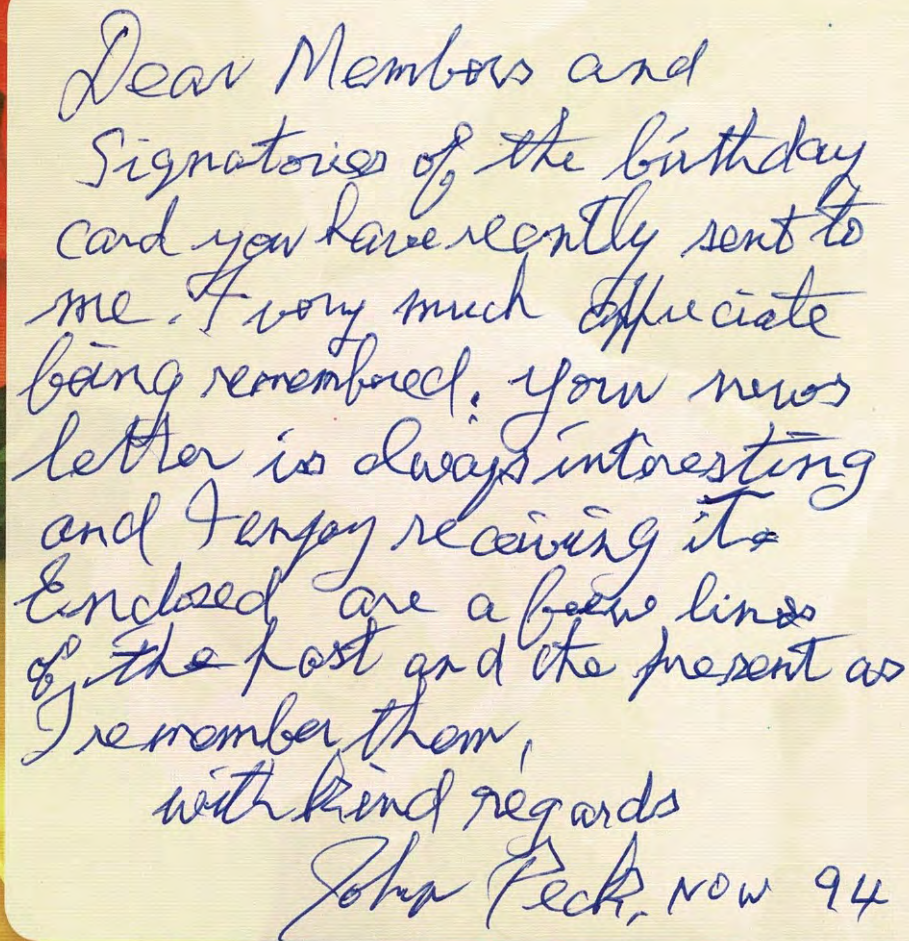 Dear Members and
Signatories of the birthday
card you have recently sent to
me. I very much appreciate
being remembered. Your news
letter is always interesting
and I enjoy receiving it.
Enclosed are a few lines
of the past and the present as
I remember them,
with kind regards
John Peck, NOW 94